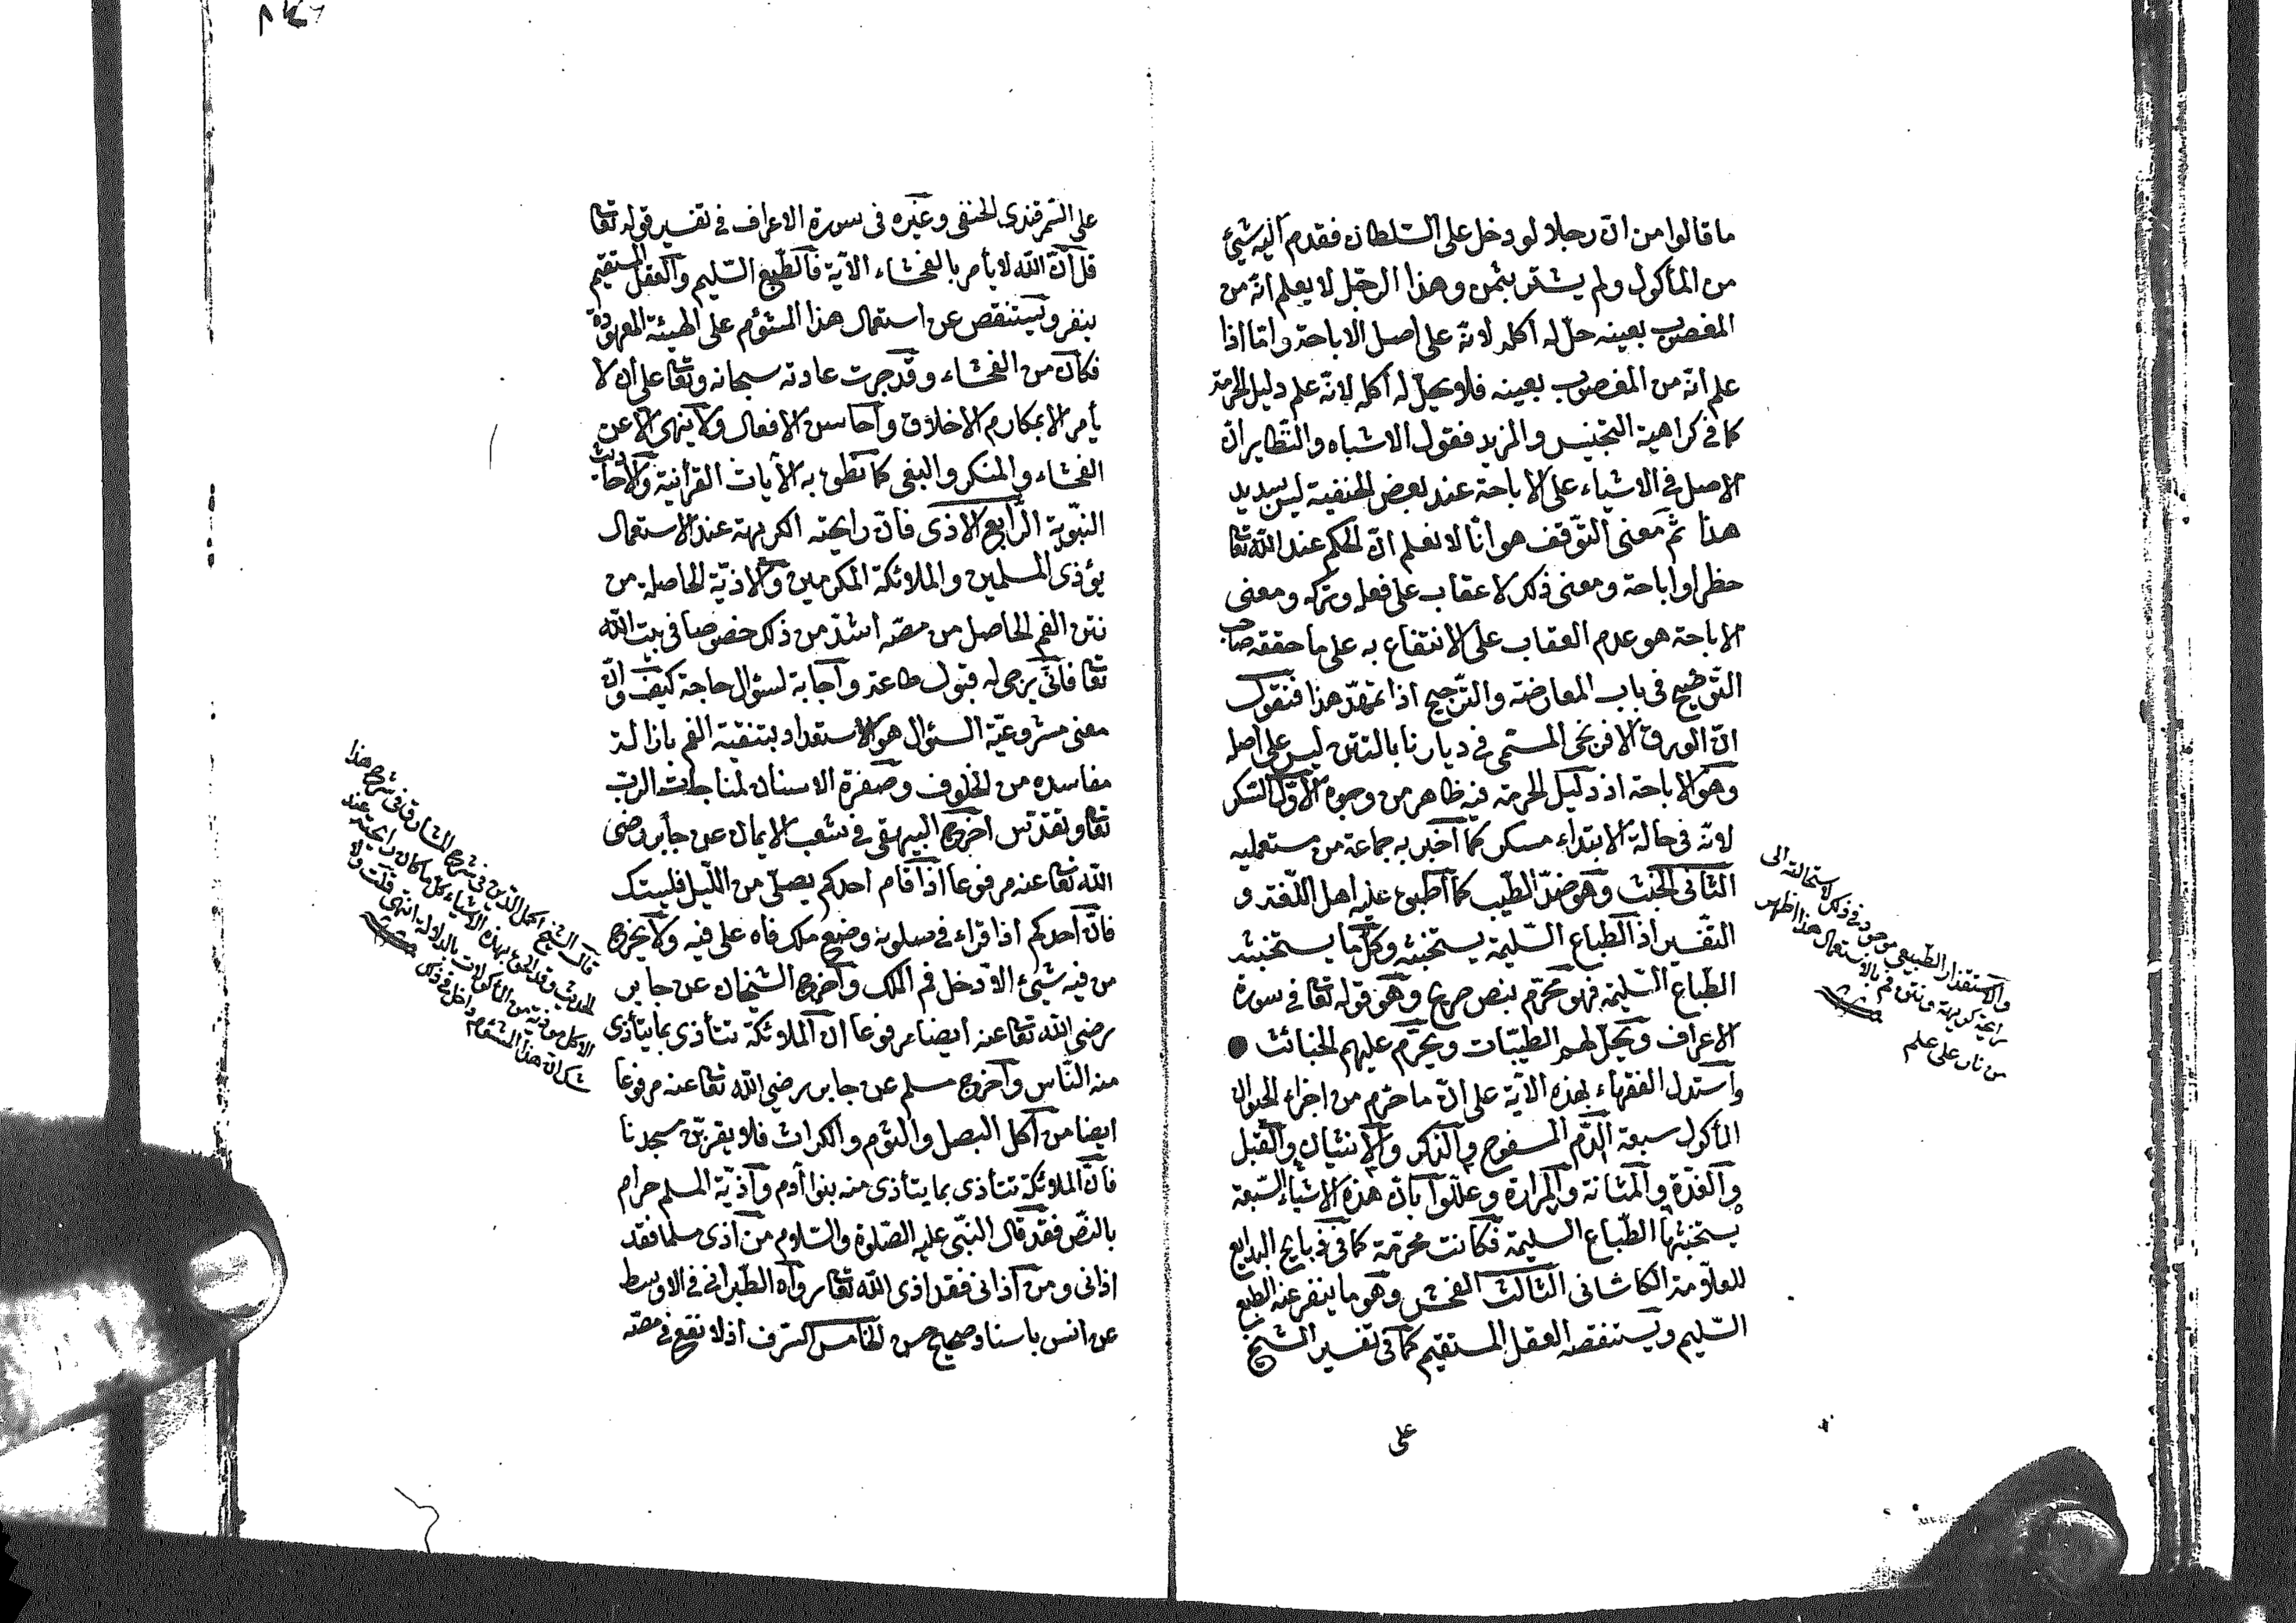 ما قالوا من ان رجلا لو دخل على السلطان فقدم اليه شيئ
من المأكول ولم يشتر بثمن وهذا الرجل لا يعلم انه من
المغصوب بعينه حل له اكله لانه على اصل الاباحة واما اذا
علم انه من المغصوب بعينه فلا يحل له اكله لانه علم دليل الحرمة
كما في كراهية التجنيس والمزيد فقول الاشباه والنظاير ان
الاصل في الاشياء على الاباحة عند بعض الحنفية ليس بسديد
هذا ثم معنى التوقف هو انا لا نعلم ان الحكم عند الله تعا
حظر او اباحة ومعنى ذلك لا عقاب على فعله وتركه ومعنى
الاباحة هو عدم العقاب على الانتفاع به على ما حققه صاحب
التوضيح في باب المعارضة والترجيح اذا تمهد هذا فنقول
ان الورق الافرنجى المسمى في ديارنا بالتتن ليس على اصله
وهو الاباحة اذ دليل الحرمة فيه ظاهر من وجوه الاول السكر
لانه في حالة الابتداء مسكر كما اخبر به جماعة من مستعمليه
الثانى الخبث وهو ضد الطيب كما اطبق عليه اهل اللغة و
التفسير اذ الطباع السليمة يستخبثه وكل ما يستخبثه
الطباع السليمة فهو محرم بنص صريح وهو قوله تعا في سورة
الاعراف ويحل لهم الطيبات ويحرم عليهم الخبائث
واستدل الفقهاء بهذه الآية على ان ما حرم من اجزاء الحيوان
المأكول سبعة الدم المسفوح والذكر والانثيان والقبل
والغدة والمثانة والمرارة وعللوا بان هذه الاشياء السبعة
يستخبثها الطباع السليمة فكانت محرمة كما في ذبايح البدايع
للعلامة الكاشانى الثالث الفحش وهو ما ينفر عنه الطبع
السليم ويستنقصه العقل المستقيم كما في تفسير الشيخ
على
والاستقذار الطبيعى موجود في ذلك لاستحالته الى
رايحة كريهة ونتن فم بالاستعمال هذا اظهر
من نار على علم
على السمرقندى الحنفى وغيره في سورة الاعراف في تفسير قوله تعا
قل ان الله لا يأمر بالفحشاء الآية فالطبع السليم والعقل المستقيم
ينفر ويستنقص عن استعمال هذا المشؤم على الهيئة المعهودة
فكان من الفحشاء وقد جرت عادته سبحانه وتعا على ان لا
يأمر الا بمكارم الاخلاق واحاسن الافعال ولا ينهى الا عن
الفحشاء والمنكر والبغى كما نطق به الآيات القرآنية والاحاديث
النبوية الرابع الاذى فان رايحته الكريهة عند الاستعمال
يؤذى المسلمين والملائكة المكرمين والاذية الحاصلة من
نتن الفم الحاصل من مصه اشد من ذلك خصوصا في بيت الله
تعا فانى يرجى له قبول طاعة واجابة لسؤال حاجة كيف وان
معنى مشروعية السئوال هو الاستعداد بتنقية الفم بازالة
مفاسده من الخلوف وصفرة الاسنان لمناجات الرب
تعا وتقدس اخرج البيهقى في شعب الايمان عن جابر رضى
الله تعا عنه مرفوعا اذا قام احدكم يصلى من الليل فليستك
فان احدكم اذا قراء في صلوته وضع ملك فاه على فيه ولا يخرج
من فيه شيئ الا دخل فم الملك واخرج الشيخان عن جابر
رضى الله تعا عنه ايضا مرفوعا ان الملائكة تتأذى بما يتأذى
منه الناس واخرج مسلم عن جابر رضى الله تعا عنه مرفوعا
ايضا من اكل البصل والثوم والكراث فلا يقربن مسجدنا
فان الملائكة تتأذى بما يتأذى منه بنوا آدم واذية المسلم حرام
بالنص فقد قال النبى عليه الصلوة والسلام من آذى مسلما فقد
اذانى ومن آذانى فقد اذى الله تعا رواه الطبرانى في الاوسط
عن انس باسناد صحيح حسن الخامس السرف اذ لا نفع في مصه
قال الشيخ اكمل الدين في شرح المشارق في شرح هذا
الحديث وقد الحق بهذه الاشياء كل ما كان رايحته عند
الاكل موذية من المأكولات بالدلالة انتهى قلت ولا
شك ان هذا المشؤم داخل في ذلك